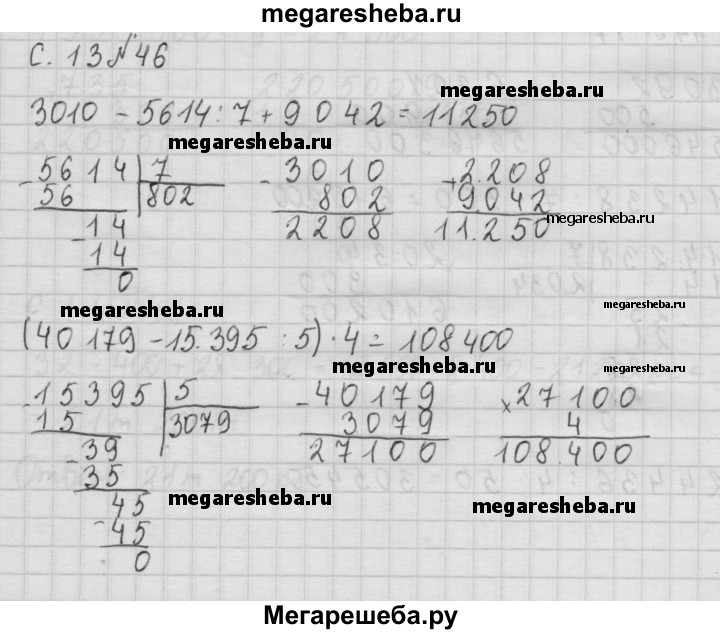 megaresheba.ru
С. 13 №46
megaresheba.ru
3010 - 5614 : 7 + 9 042 = 11250
megaresheba.ru
- 5614 | 7
56 | 802
- 14
14
0
- 3010
802
2208
+ 2.208
9.042
11.250
megaresheba.ru
megaresheba.ru
megaresheba.ru
(40 179 - 15.395 : 5) · 4 = 108 400
megaresheba.ru
- 15395 | 5
15 | 3079
- 39
35
- 45
45
0
- 40179
3079
27100
x 27100
4
108.400
megaresheba.ru
megaresheba.ru
Мегарешеба.ру